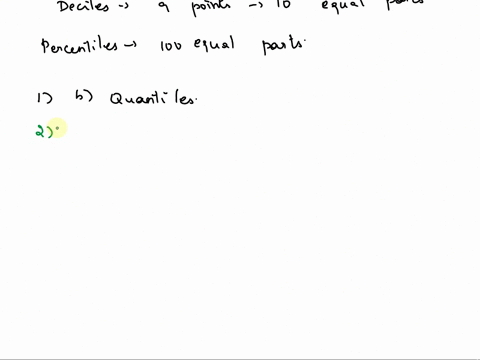 Deciles → 9 points → 10 equal parts
Percentiles → 100 equal parts.
1) b) Quantiles.
2)